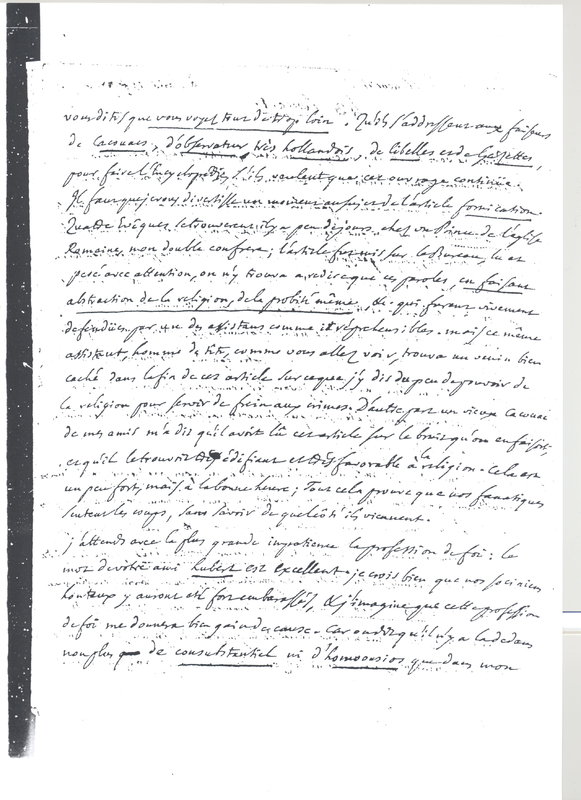 vous dites que vous voyez tout de trop loin. Qu'ils s'addressent aux faiseurs
de Cacouacs, d'observateur très hollandois, de libelles et de Gazettes,
pour faire l'Encyclopédie, s'ils veulent que cet ouvrage continüe.
Il faut que je vous divertisse un moment au sujet de l'article fornication.
Quatre Evêques se trouverent il y a peu de jours chez un Prince de l'église
Romaine, mon double confrere; l'article fut mis sur le Bureau, lu et
pesé avec attention, on n'y trouva a redire que ces paroles, en faisant
abstraction de la religion, de la probité même, &c. qui furent vivement
defendües par un des assistans comme irréprehensibles. mais ce même
assistant, homme de tête, comme vous allez voir, trouva un venin bien
caché dans la fin de cet article sur ce que j'y dis du peu de pouvoir de
la religion pour servir de frein aux crimes. D'autre part un vieux Cacouac
de mes amis m'a dit qu'il avoit lû cet article sur le bruit qu'on en faisoit,
et qu'il le trouvoit édifiant et très favorable à la religion. Cela est
un peu fort, mais à la bonne heure; Tout cela prouve que nos fanatiques
sentent les coups, sans savoir de quel côté ils viennent.
j'attends avec la plus grande impatience la profession de foi: le
mot de votre ami hubert est excellent. je crois bien que nos sociniens
honteux y auront été fort embarassés, & j'imagine que cette profession
de foi me donnera bien gain de cause. Car on dit qu'il n'y a la dedans
non plus de consubstantiel ni d'homoousios que dans mon